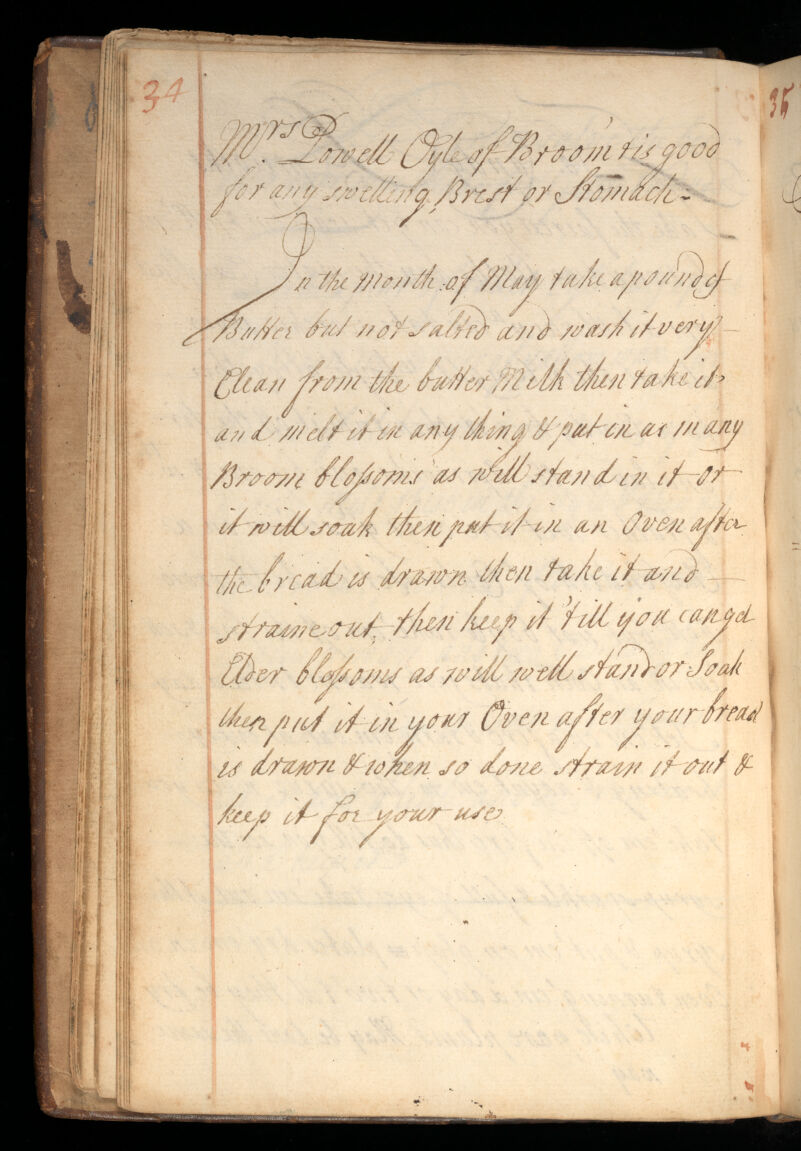 34
Mrs. Powell Oyle of Broom tis good
for any swelling, Brest or Stomach-
In the month of May take a pound of
Butter but not salted and wash it very
Clean from the butter Milk then take it
and melt it in any thing & put in as many
Broom bloſsoms as will stand in it or
it will soak then put it in an Oven after
the bread is drawn then take it and
straine out, then keep it 'till you can get
Elder bloſsoms as will well stand or Soak
then put it in your Oven after your bread
is drawn & when so done strain it out &
keep it for your use
35